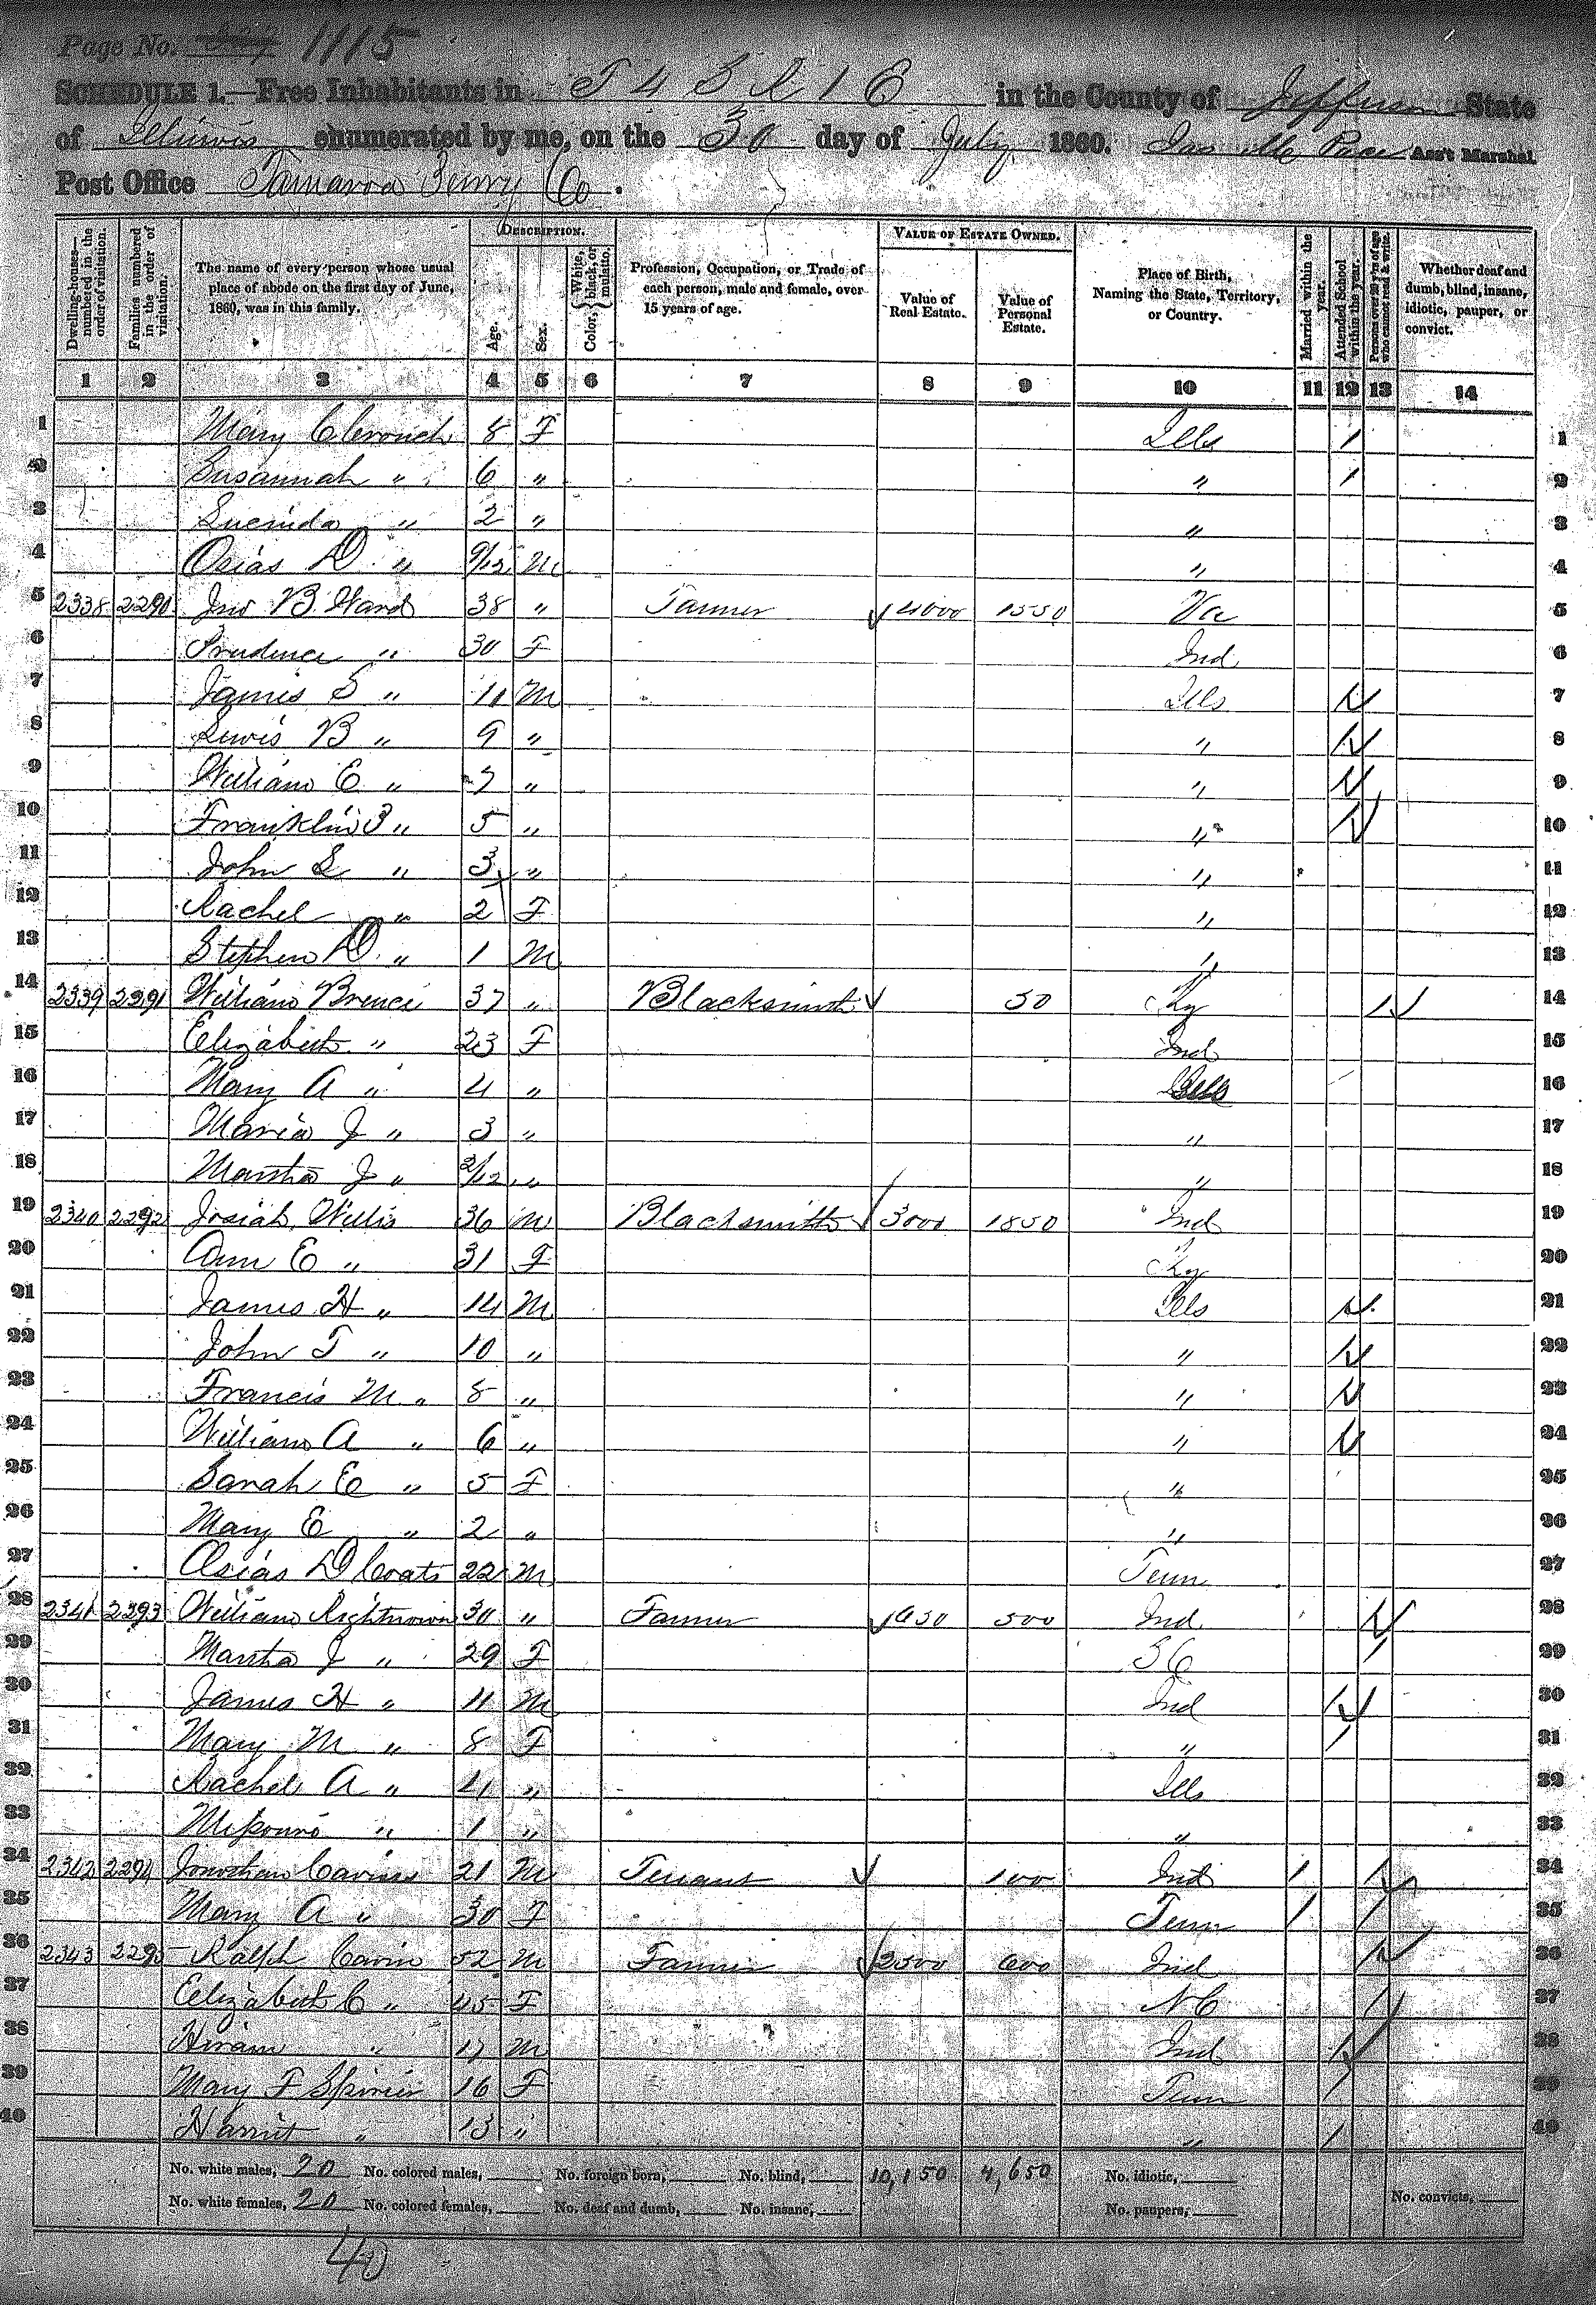 Page No. 1115
SCHEDULE 1.—Free Inhabitants in T 4 S R 1 E in the County of Jefferson State
of Illinois enumerated by me, on the 30 day of July 1860. Pace Ass't Marshal.
Post Office Tamaroa Perry Co.
DESCRIPTION. VALUE OF ESTATE OWNED.
Dwelling-houses—numbered in the order of visitation. Families numbered in the order of visitation. The name of every person whose usual place of abode on the first day of June, 1860, was in this family. Age. Sex. Color, {White, black, or mulatto. Profession, Occupation, or Trade of each person, male and female, over 15 years of age. Value of Real Estate. Value of Personal Estate. Place of Birth, Naming the State, Territory, or Country. Married within the year. Attended School within the year. Persons over 20 y'rs of age who cannot read & write. Whether deaf and dumb, blind, insane, idiotic, pauper, or convict.
1 2 3 4 5 6 7 8 9 10 11 12 13 14
1 Mary C Crouch 8 F Ills / 1
2 Susannah " 6 " " / 2
3 Lucinda " 2 " " 3
4 Osias D " 9/12 M " 4
5 2338 2290 Jno B. Ward 38 " Farmer 4000 1550 Va 5
6 Prudence " 30 F Ind 6
7 James S " 11 M Ills / 7
8 Lewis B " 9 " " / 8
9 William E " 7 " " / 9
10 Franklin " 5 " " / 10
11 John L " 3 " " 11
12 Rachel " 2 F " 12
13 Stephen D. " 1 M " 13
14 2339 2291 William 37 " Blacksmith 50 Ky / 14
15 Elizabeth " 23 F Ind 15
16 Mary A " 4 " Ills 16
17 Maria J " 3 " " 17
18 Martha J " 2/12 " " 18
19 2340 2292 Josiah Willis 36 M Blacksmith 3000 1850 Ind 19
20 Ann E " 31 F Ky 20
21 James H " 14 M Ills / 21
22 John T " 10 " " / 22
23 Francis M " 8 " " / 23
24 William A " 6 " " / 24
25 Sarah E " 5 F " 25
26 Mary E " 2 " " 26
27 Osias D Coats 22 M Tenn 27
28 2341 2293 William Rightnowar 30 " Farmer 650 500 Ind / 28
29 Martha J " 29 F S C / 29
30 James H " 11 M Ind / 30
31 Mary M " 8 F " / 31
32 Rachel A " 4 " Ills 32
33 Missouri " 1 " " 33
34 2342 2294 Jonathan 21 M Tenant 100 Ind / / 34
35 Mary A " 30 F Tenn / / 35
36 2343 2295 Ralph Cavin 52 M Farmer 2500 600 Ind / 36
37 Elizabeth C " 45 F N C / 37
38 Hiram " 17 M Ind / 38
39 Mary F 16 F Tenn / 39
40 Harriet " 13 " " / 40
No. white males, 20 No. colored males, No. foreign born, No. blind, 10,150 4,650 No. idiotic,
No. white females, 20 No. colored females, No. deaf and dumb, No. insane, No. paupers, No. convicts,
40